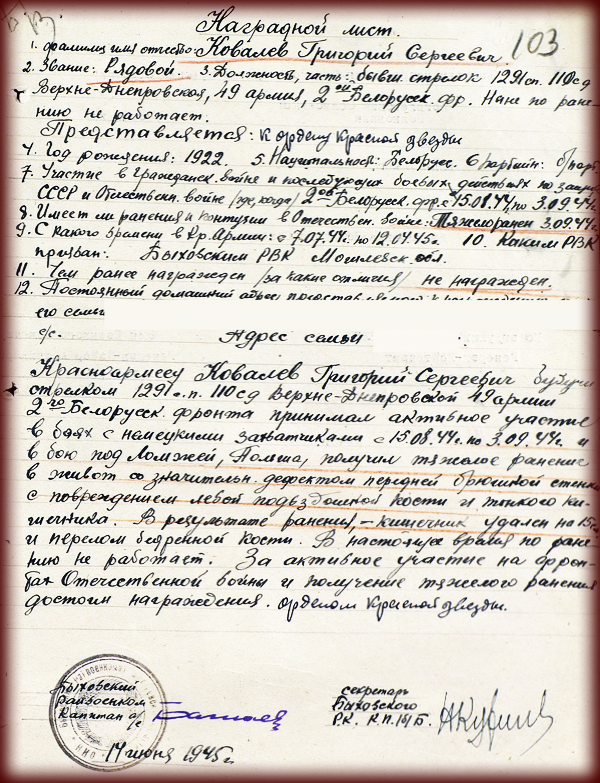 Наградной лист.
103
1. Фамилия, имя отчество: Ковалев Григорий Сергеевич
2. Звание: Рядовой. 3. Должность, часть: бывш. стрелок 1291 сп. 110 сд
Верхне-Днепровская, 49 армия, 2ой Белорусск. фр. Ныне по ране-
нию не работает.
Представляется: к ордену Красной звезды
4. Год рождения: 1922. 5. Национальность: Белорус. 6. Партийн: б/парт.
7. Участие в гражданск. войне и последующих боевых действиях по защите
СССР и Отечествен. войне /где, когда/ 2ой Белорусск. фр. с 15.08.44 по 3.09.44г.
8. Имеет ли ранения и контузии в Отечествен. войне: Тяжелоранен 3.09.44г.
9. С какого времени в Кр. Армии: с 7.07.44г. по 12.04.45г. 10. Каким РВК
призван: Быховским РВК Могилевск. обл.
11. Чем ранее награжден /за какие отличия/ не награжден.
12. Постоянный домашний адрес представляемого к
его семьи
с/с. Адрес семьи
Красноармеец Ковалев Григорий Сергеевич будучи
стрелком 1291 с.п. 110 сд Верхне-Днепровской 49 армии
2го Белорусск. фронта принимал активное участие
в боях с немецкими захватчиками с 15.08.44г. по 3.09.44г. и
в бою под Ломжей, Польша, получил тяжелое ранение
в живот со значительн. дефектом передней брюшной стенки
с повреждением левой подвздошной кости и тонкого ки-
шечника. В результате ранения, – кишечник удален на 15
и перелом бедренной кости. В настоящее время по ране-
нию не работает. За активное участие на фрон-
тах Отечественной войны и получение тяжелого ранения
достоин награждения орденом Красной звезды.
Быховский
райвоенком
капитан а/с
14 июня 1945г.
секретарь
Быховского
Р.К. К.П./б/Б.